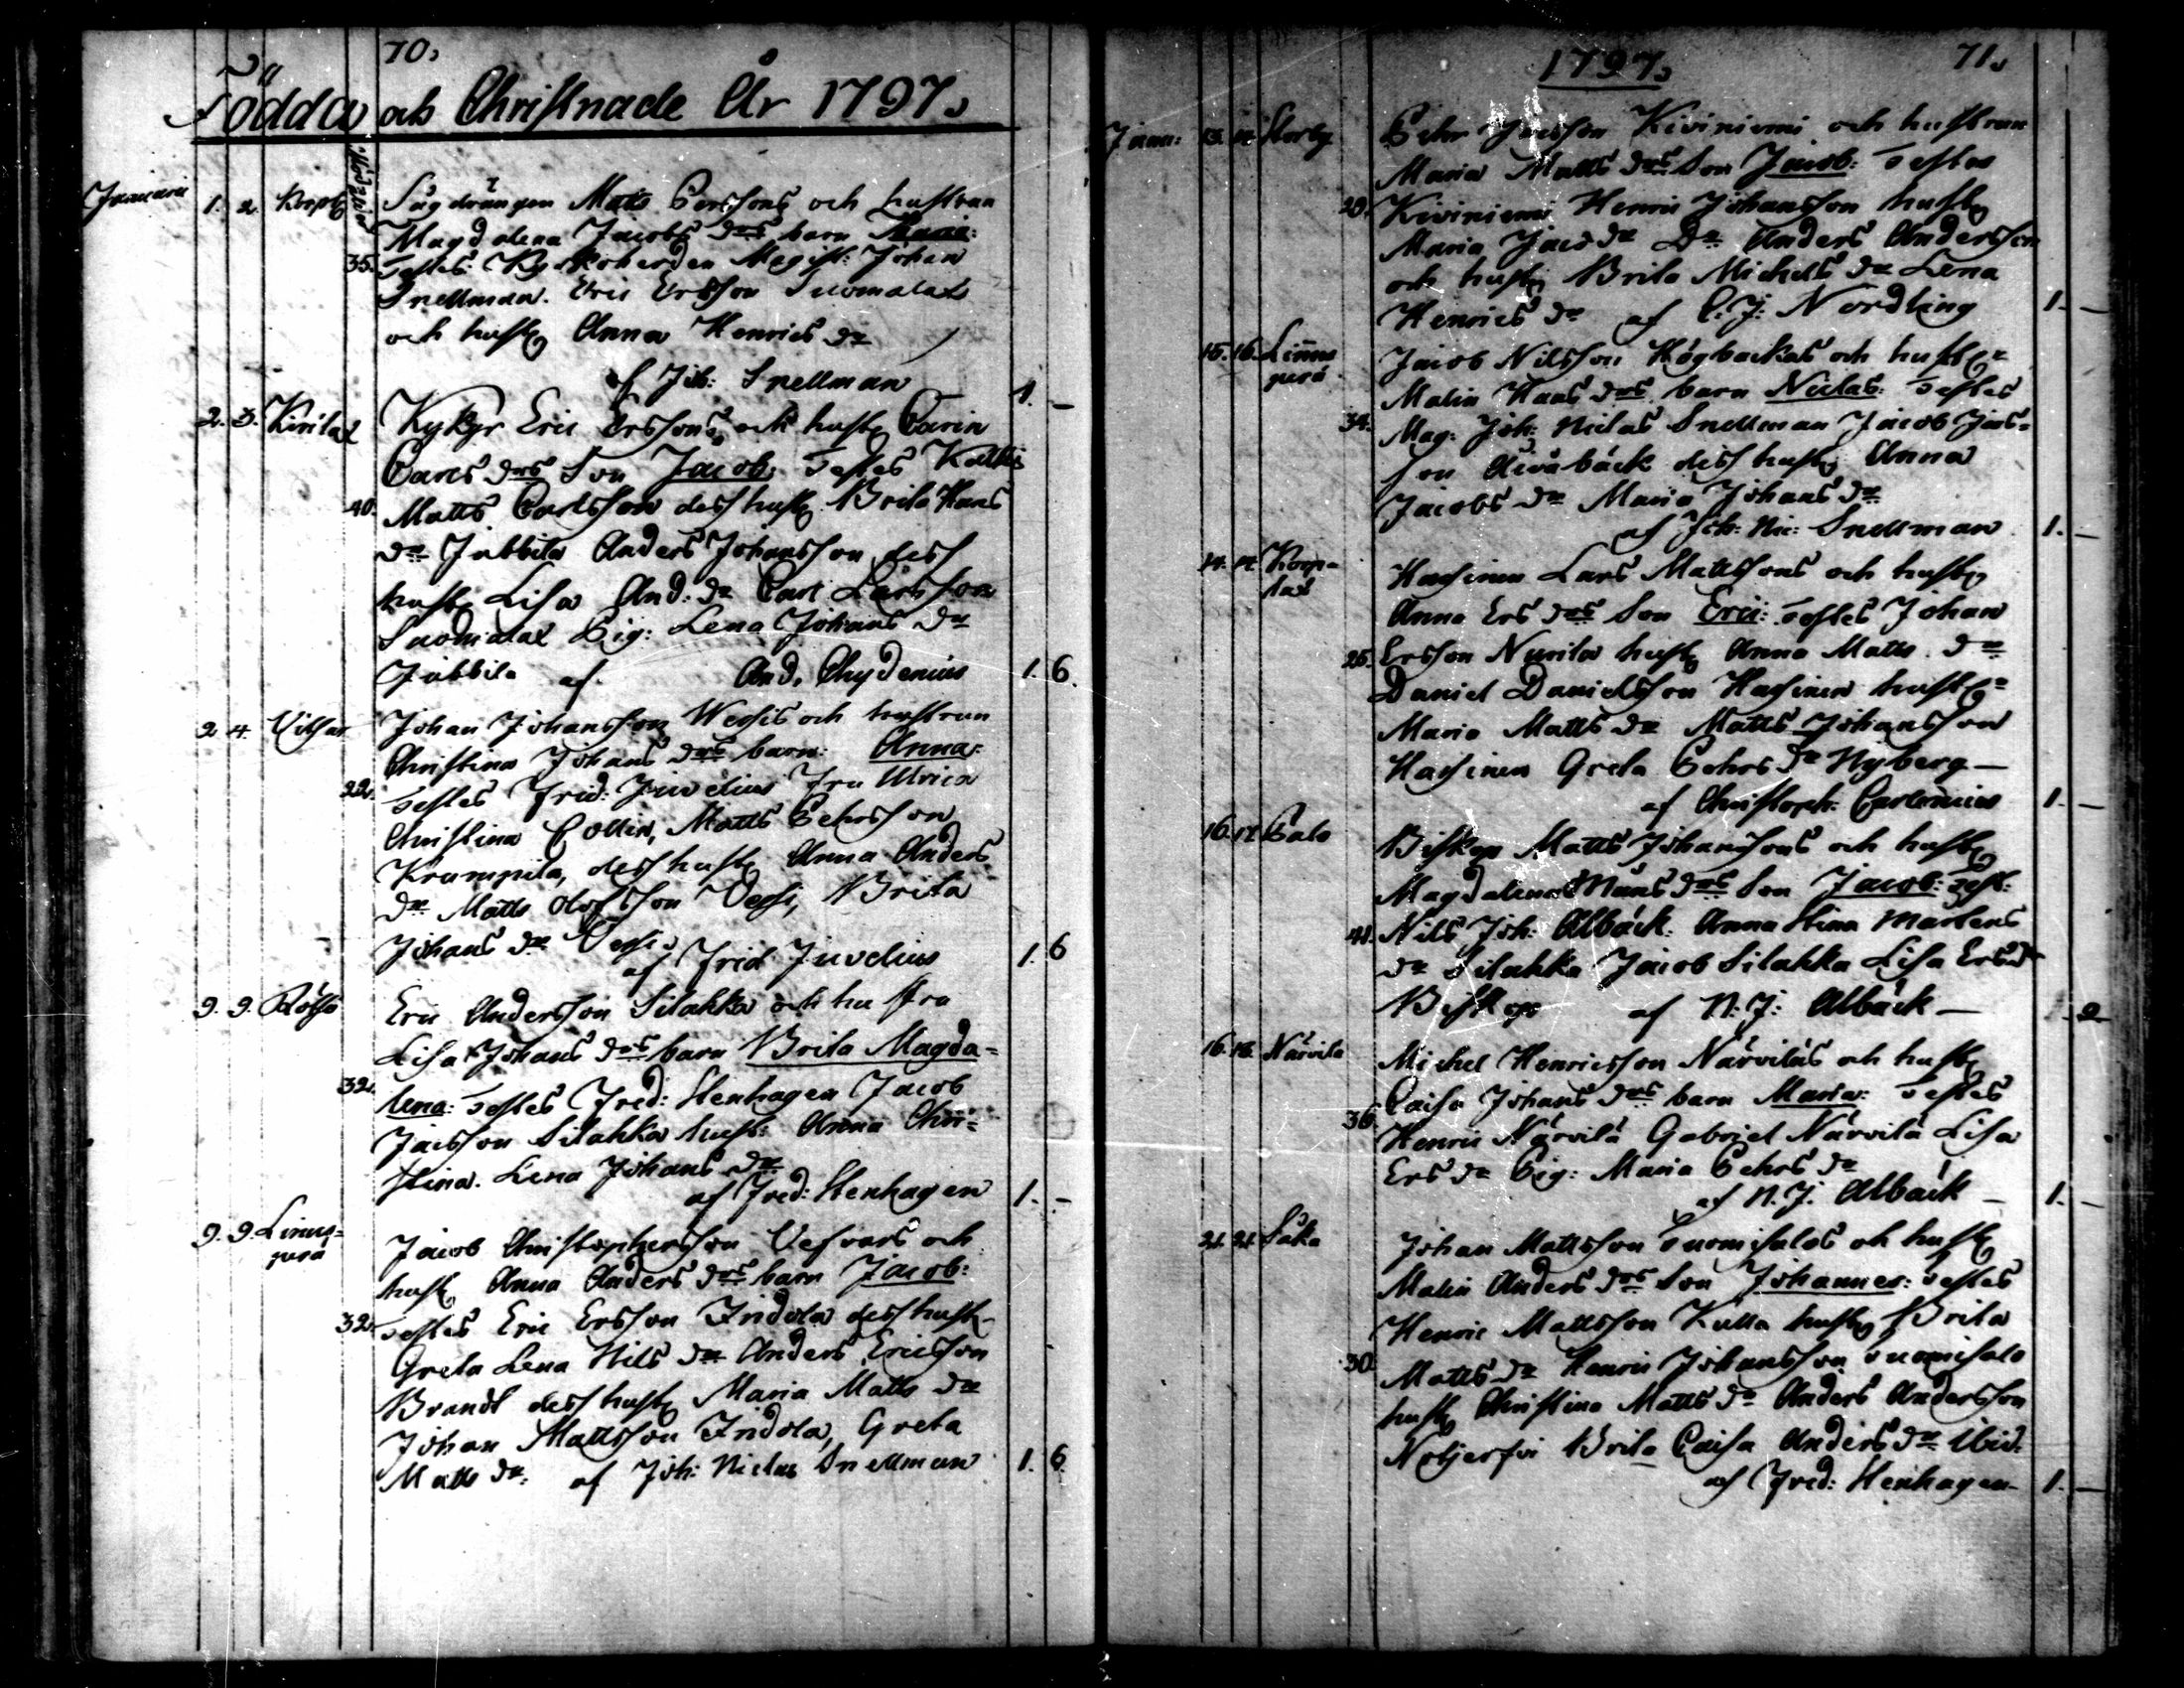 70.
Födda och Christnade År 1797.
Januarii 1. 2. Korpl. Sågdrängen Matts Perssons och hustrun
Magdalena Jacobs drs barn Maria:
35. Testes: Kyrkoherden Magist: Johan
Snellman. Eric Ersson Suomalax
och hust. Anna Henrics dr
af Joh: Snellman 1. —
2. 3. Kirilax Kykyr Eric Erssons och hust. Carin
Carls drs Son Jacob: Testes Kallis
40. Matts Carlsson dess hust. Brita Hans
dr Jubbila Anders Johansson dess
hust. Lisa And: dr Carl Larsson
Suomalax Pig: Lena Johans dr
Jubbila af And. Chydenius 1. 6.
2. 4. Vitsar Johan Johansson Wessis och hustrun
Christina Johans drs barn: Anna:
22. Testes Frid: Juvelius Fru Ulrica
Christina Collin, Matts Pehrsson
Krumpila, dess hust. Anna Anders
dr Matts Olofsson Vessi, Brita
Johans dr Vessi.
af Frid Juvelius 1. 6
9. 9. Rödsö Eric Andersson Silahka och hustru
Lisa Johans drs barn Brita Magda=
32. lena: Testes Fred: Stenhagen Jacob
Jacsson Silahka hust: Anna Chri=
stina. Lena Johans dr
af Fred: Stenhagen 1. —
9. 9. Linnus= Jacob Christophersson Vefvars och
perä hust. Anna Anders drs barn Jacob:
32. Testes Eric Ersson Indola dess hust.
Greta Lena Nils dr Anders Ericsson
Brandt dess hust. Maria Matts dr
Johan Mattsson Indola, Greta
Matts dr. af Joh: Niclas Snellman 1. 6.
1797. 71.
Janu: 13. 14. Storby Pehr Jacsson Kiviniemi och hustrun
Maria Matts drs Son Jacob: Testes
20. Kiviniemi Henric Johansson hust.
Maria Jacs dr Dr Anders Andersson
och hust. Brita Michels dr Lena
Henrics dr af C. J: Nordling 1. —
15. 16. Linnus Jacob Nilsson Högbackas och hust.
perä Malin Hans drs barn Niclas: Testes
34. Mag: Joh: Niclas Snellman Jacob Jacs=
son Åiväbäck dess hust. Anna
Jacobs dr Maria Johans dr
af Joh: Nic: Snellman 1. —
14. 14. Korp= Hassinen Lars Mattsons och hust.
lax Anna Ers drs Son Eric: Testes Johan
25. Ersson Nurila hust. Anna Matts dr
Daniel Danielsson Hassinen hust.
Maria Matts dr Matts Johansson
Hassinen Greta Pehrs dr Nyberg —
af Christoph: Carlenius 1. —
16. 17. Palo Biskop Matts Johanssons och hust.
Magdalena Måns drs Son Jacob: Test:
41. Nils Joh: Albäck. Anna Stina Martens
dr Silahka Jacob Silahka Lisa Ers dr
Biskop af N: J: Albäck — 2
16. 18. Närvilä Michel Henricsson Närviläs och hust.
Caisa Johans drs barn Maria: Testes
36 Henric Närvilä Gabriel Närvilä Lisa
Ers dr Pig: Maria Pehrs dr
af N. J. Albäck — 1. —
21. 21. Såka Johan Mattsson Suomisalos och hust.
Malin Anders drs Son Johannes: Testes
Henric Mattsson Kulla hust. Brita
30. Matts dr Henric Johansson Suomisalo
hust. Christina Matts dr Anders Andersson
Brita Caisa Anders dr Ibid.
af Fred: Stenhagen 1. —